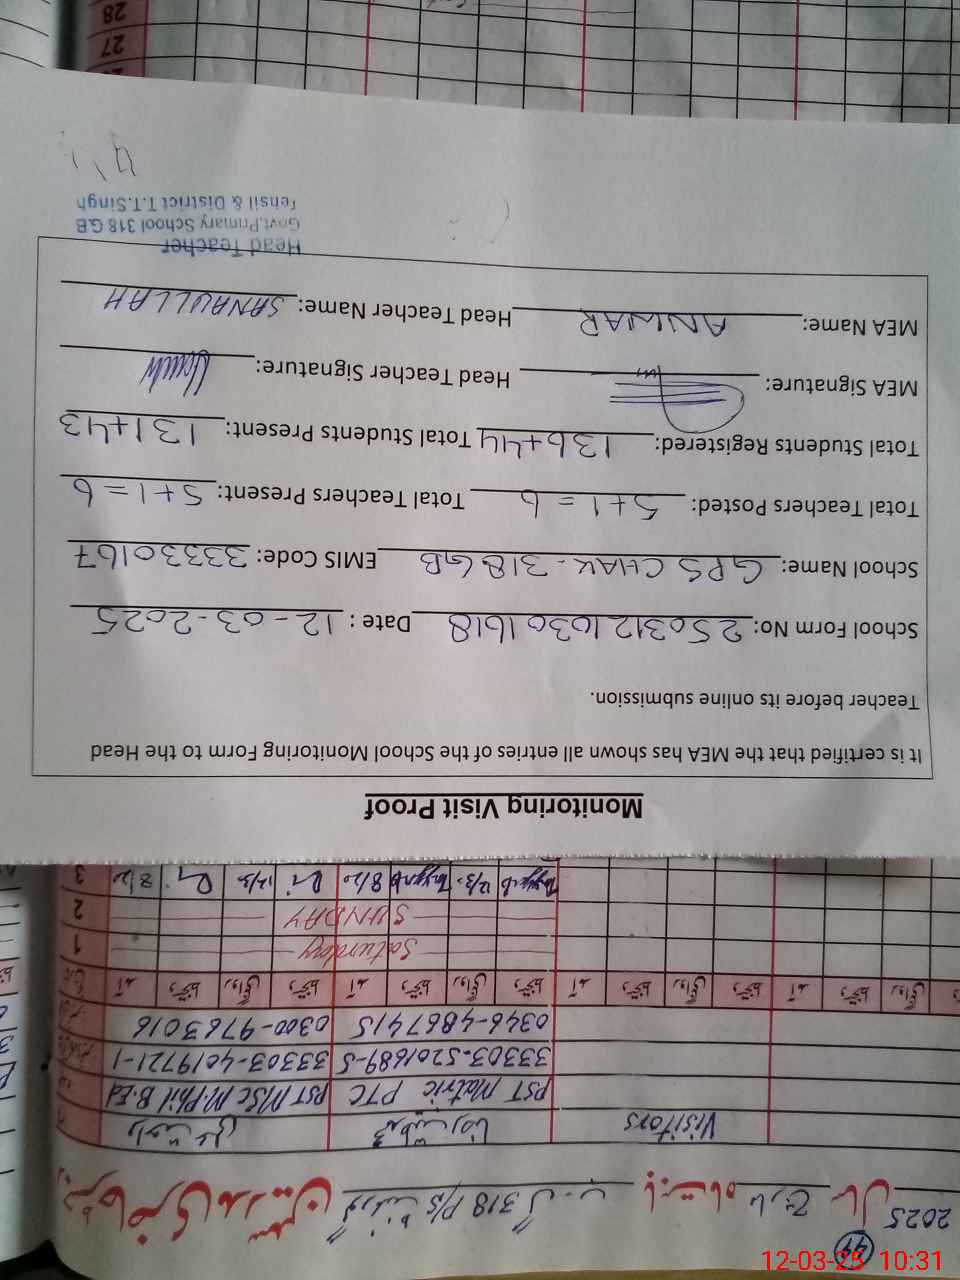 Monitoring Visit Proof
It is certified that the MEA has shown all entries of the School Monitoring Form to the Head
Teacher before its online submission.
School Form No: 25031210301618 Date : 12-03-2025
School Name: GPS CHAK-318 GB EMIS Code: 33330167
Total Teachers Posted: 5+1=6 Total Teachers Present: 5+1=6
Total Students Registered: 136+44 Total Students Present: 131+43
MEA Signature: Head Teacher Signature:
MEA Name: ANWAR Head Teacher Name: SANAULLAH
Head Teacher
Govt.Primary School 318 GB
Tehsil & District T.T.Singh
2025 سال مارچ بابت ماہ 318 P/S گ ب
44
VISITORS
PST Matric PTC PST MSc M.Phil B.Ed
33303-5201689-5 33303-4019721-1
0346-4867415 0300-9763016
آمد دستخط روانگی دستخط آمد دستخط روانگی دستخط
1 Saturday
2 SUNDAY
3 8/20 12/3. 8/20
27
28
12-03-25 10:31